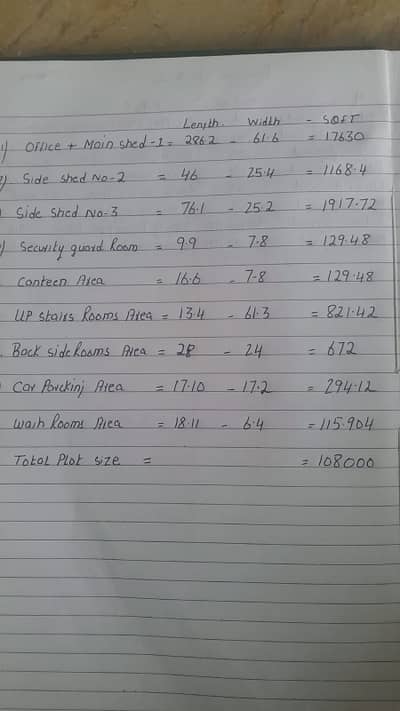 Length. Width - SQFT
1) Office + Main Shed-1 = 286.2 - 61.6 = 17630
2) Side Shed No-2 = 46 - 25.4 = 1168.4
) Side Shed No-3 = 76.1 - 25.2 = 1917.72
) Security guard Room = 9.9 - 7.8 = 129.48
Canteen Area = 16.6 - 7.8 = 129.48
UP stairs Rooms Area = 13.4 - 61.3 = 821.42
Back side Rooms Area = 28 - 24 = 672
) Car Porckinj Area = 17.10 - 17.2 = 294.12
Wash Rooms Area = 18.11 - 6.4 = 115.904
Total Plot size = = 108000